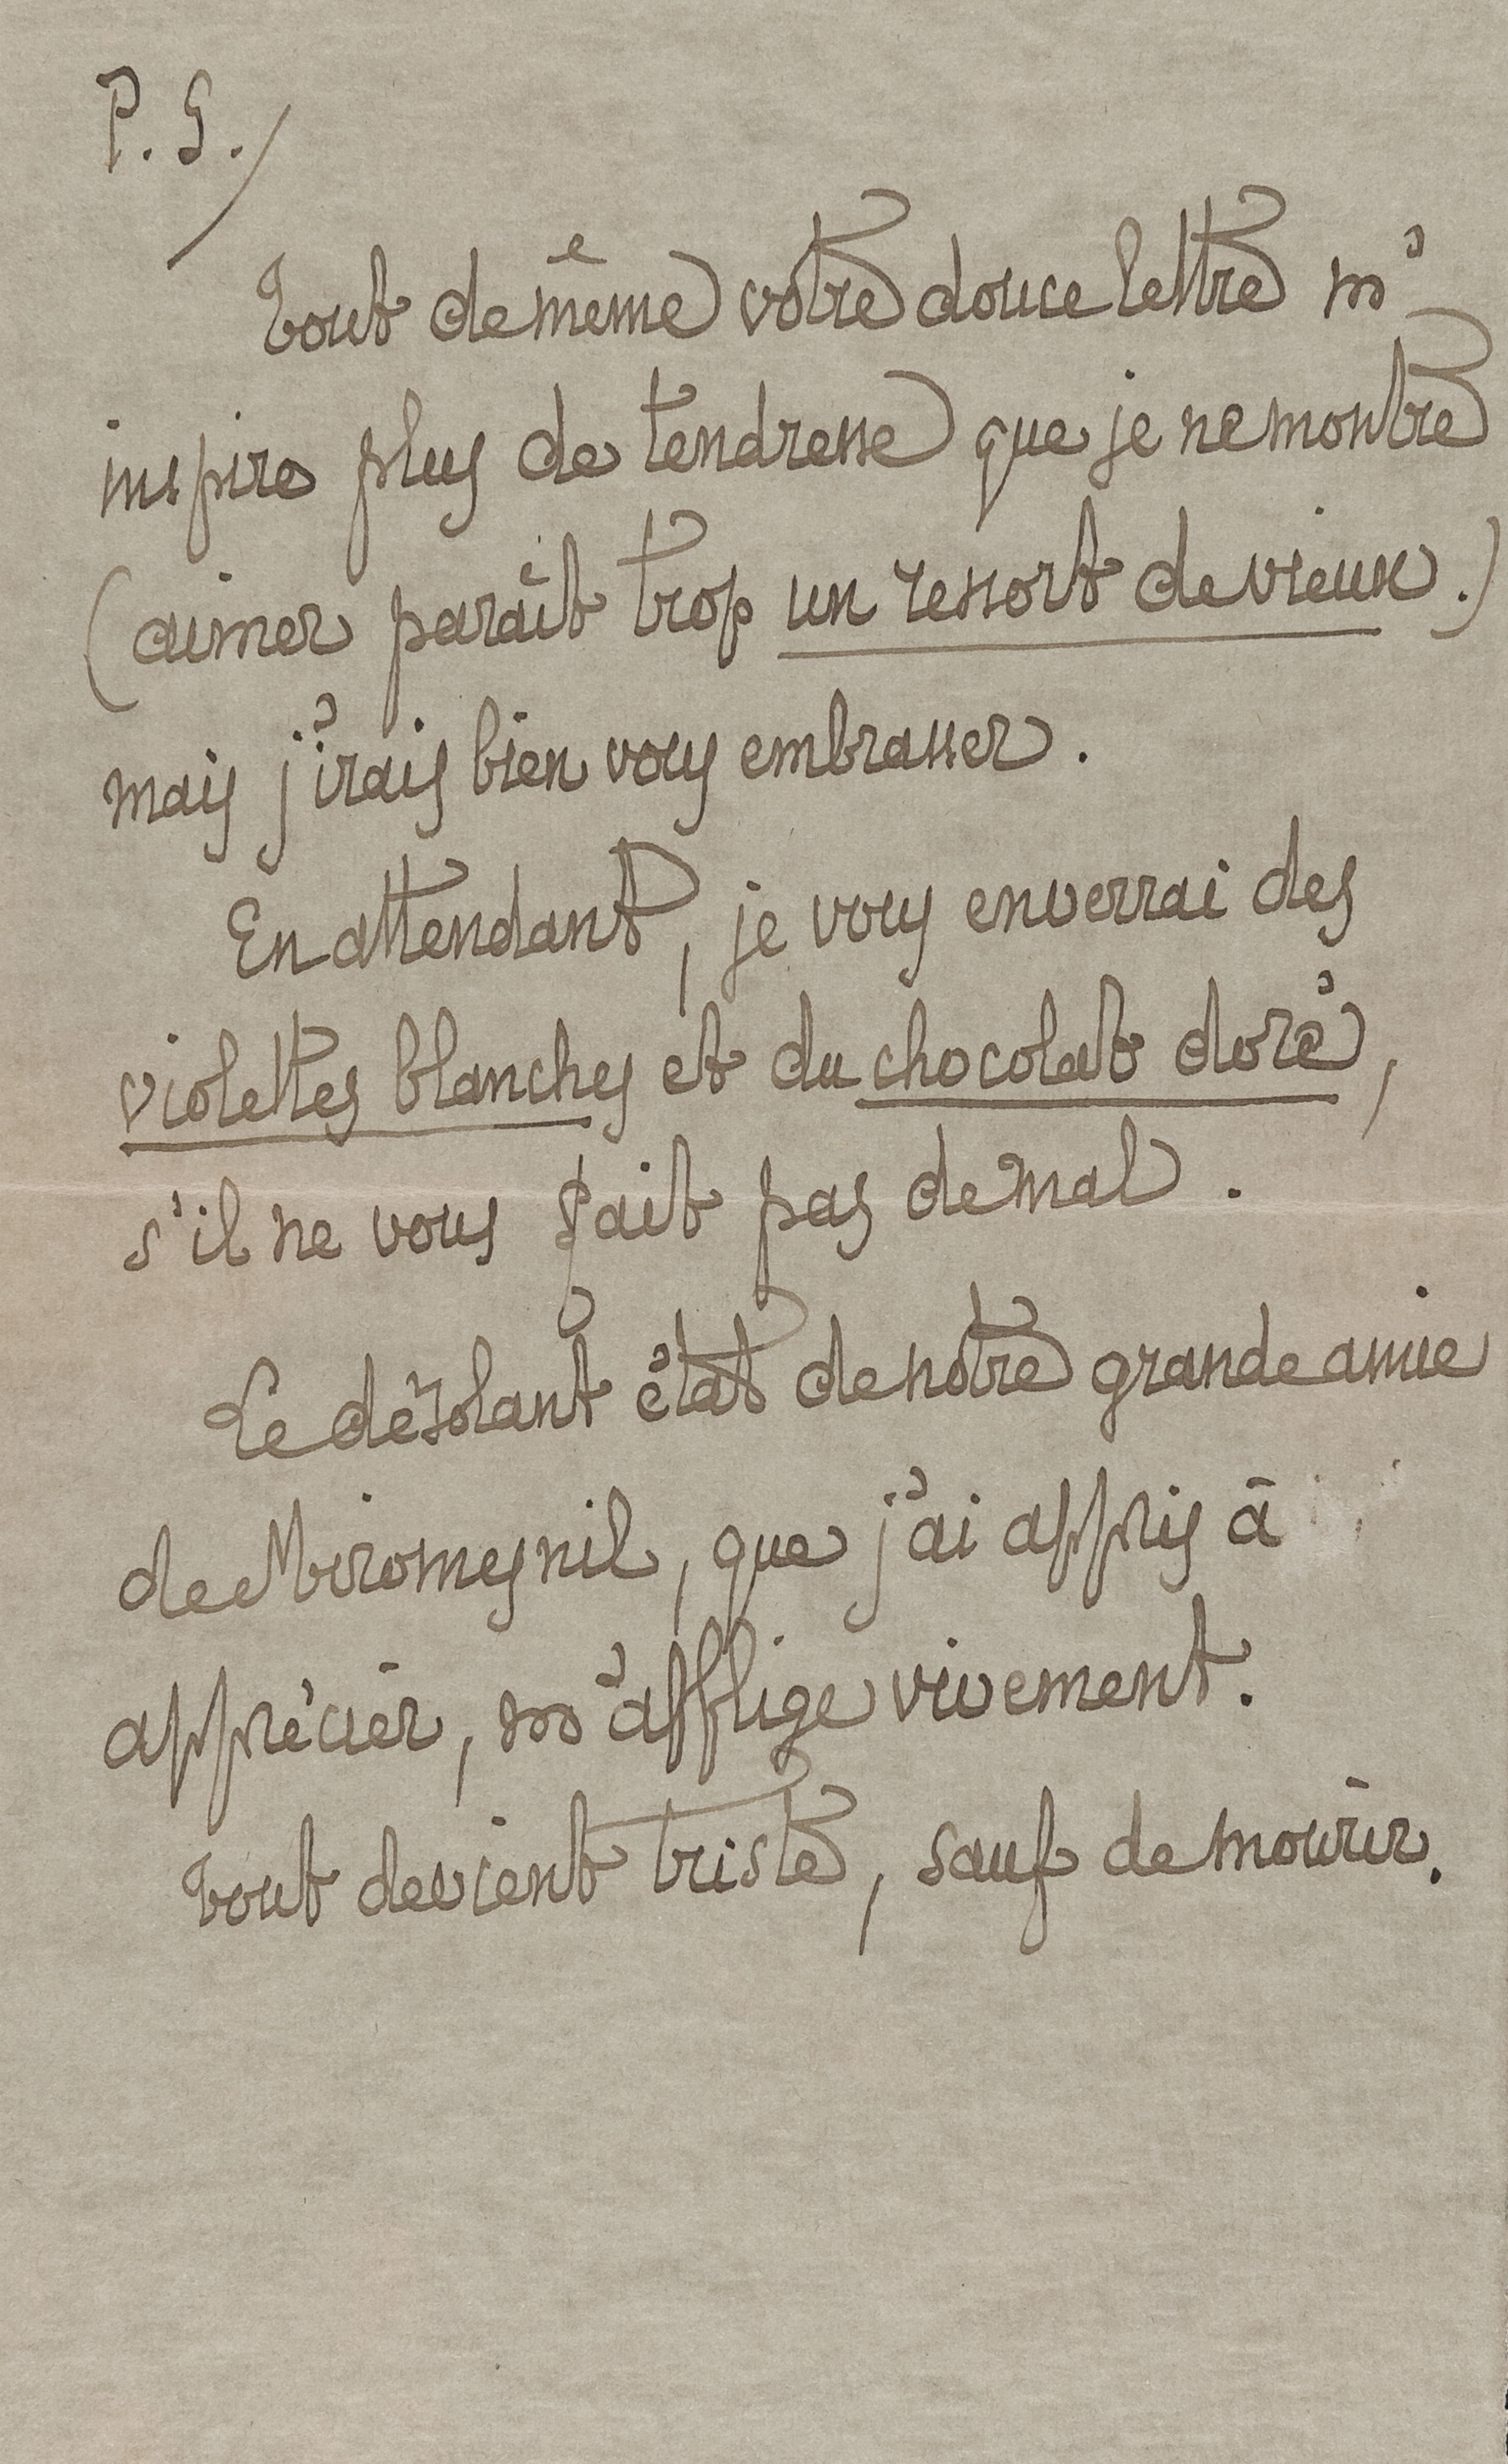 P. S.
Tout de même votre douce lettre m'
inspire plus de tendresse que je ne montre
(aimer paraît trop un ressort de vieux.)
mais j'irais bien vous embrasser.
En attendant, je vous enverrai des
violettes blanches et du chocolat doré,
s'il ne vous fait pas de mal.
Le désolant état de notre grande amie
de Miromesnil, que j'ai appris à
apprécier, m'afflige vivement.
Tout devient triste, sauf de mourir.